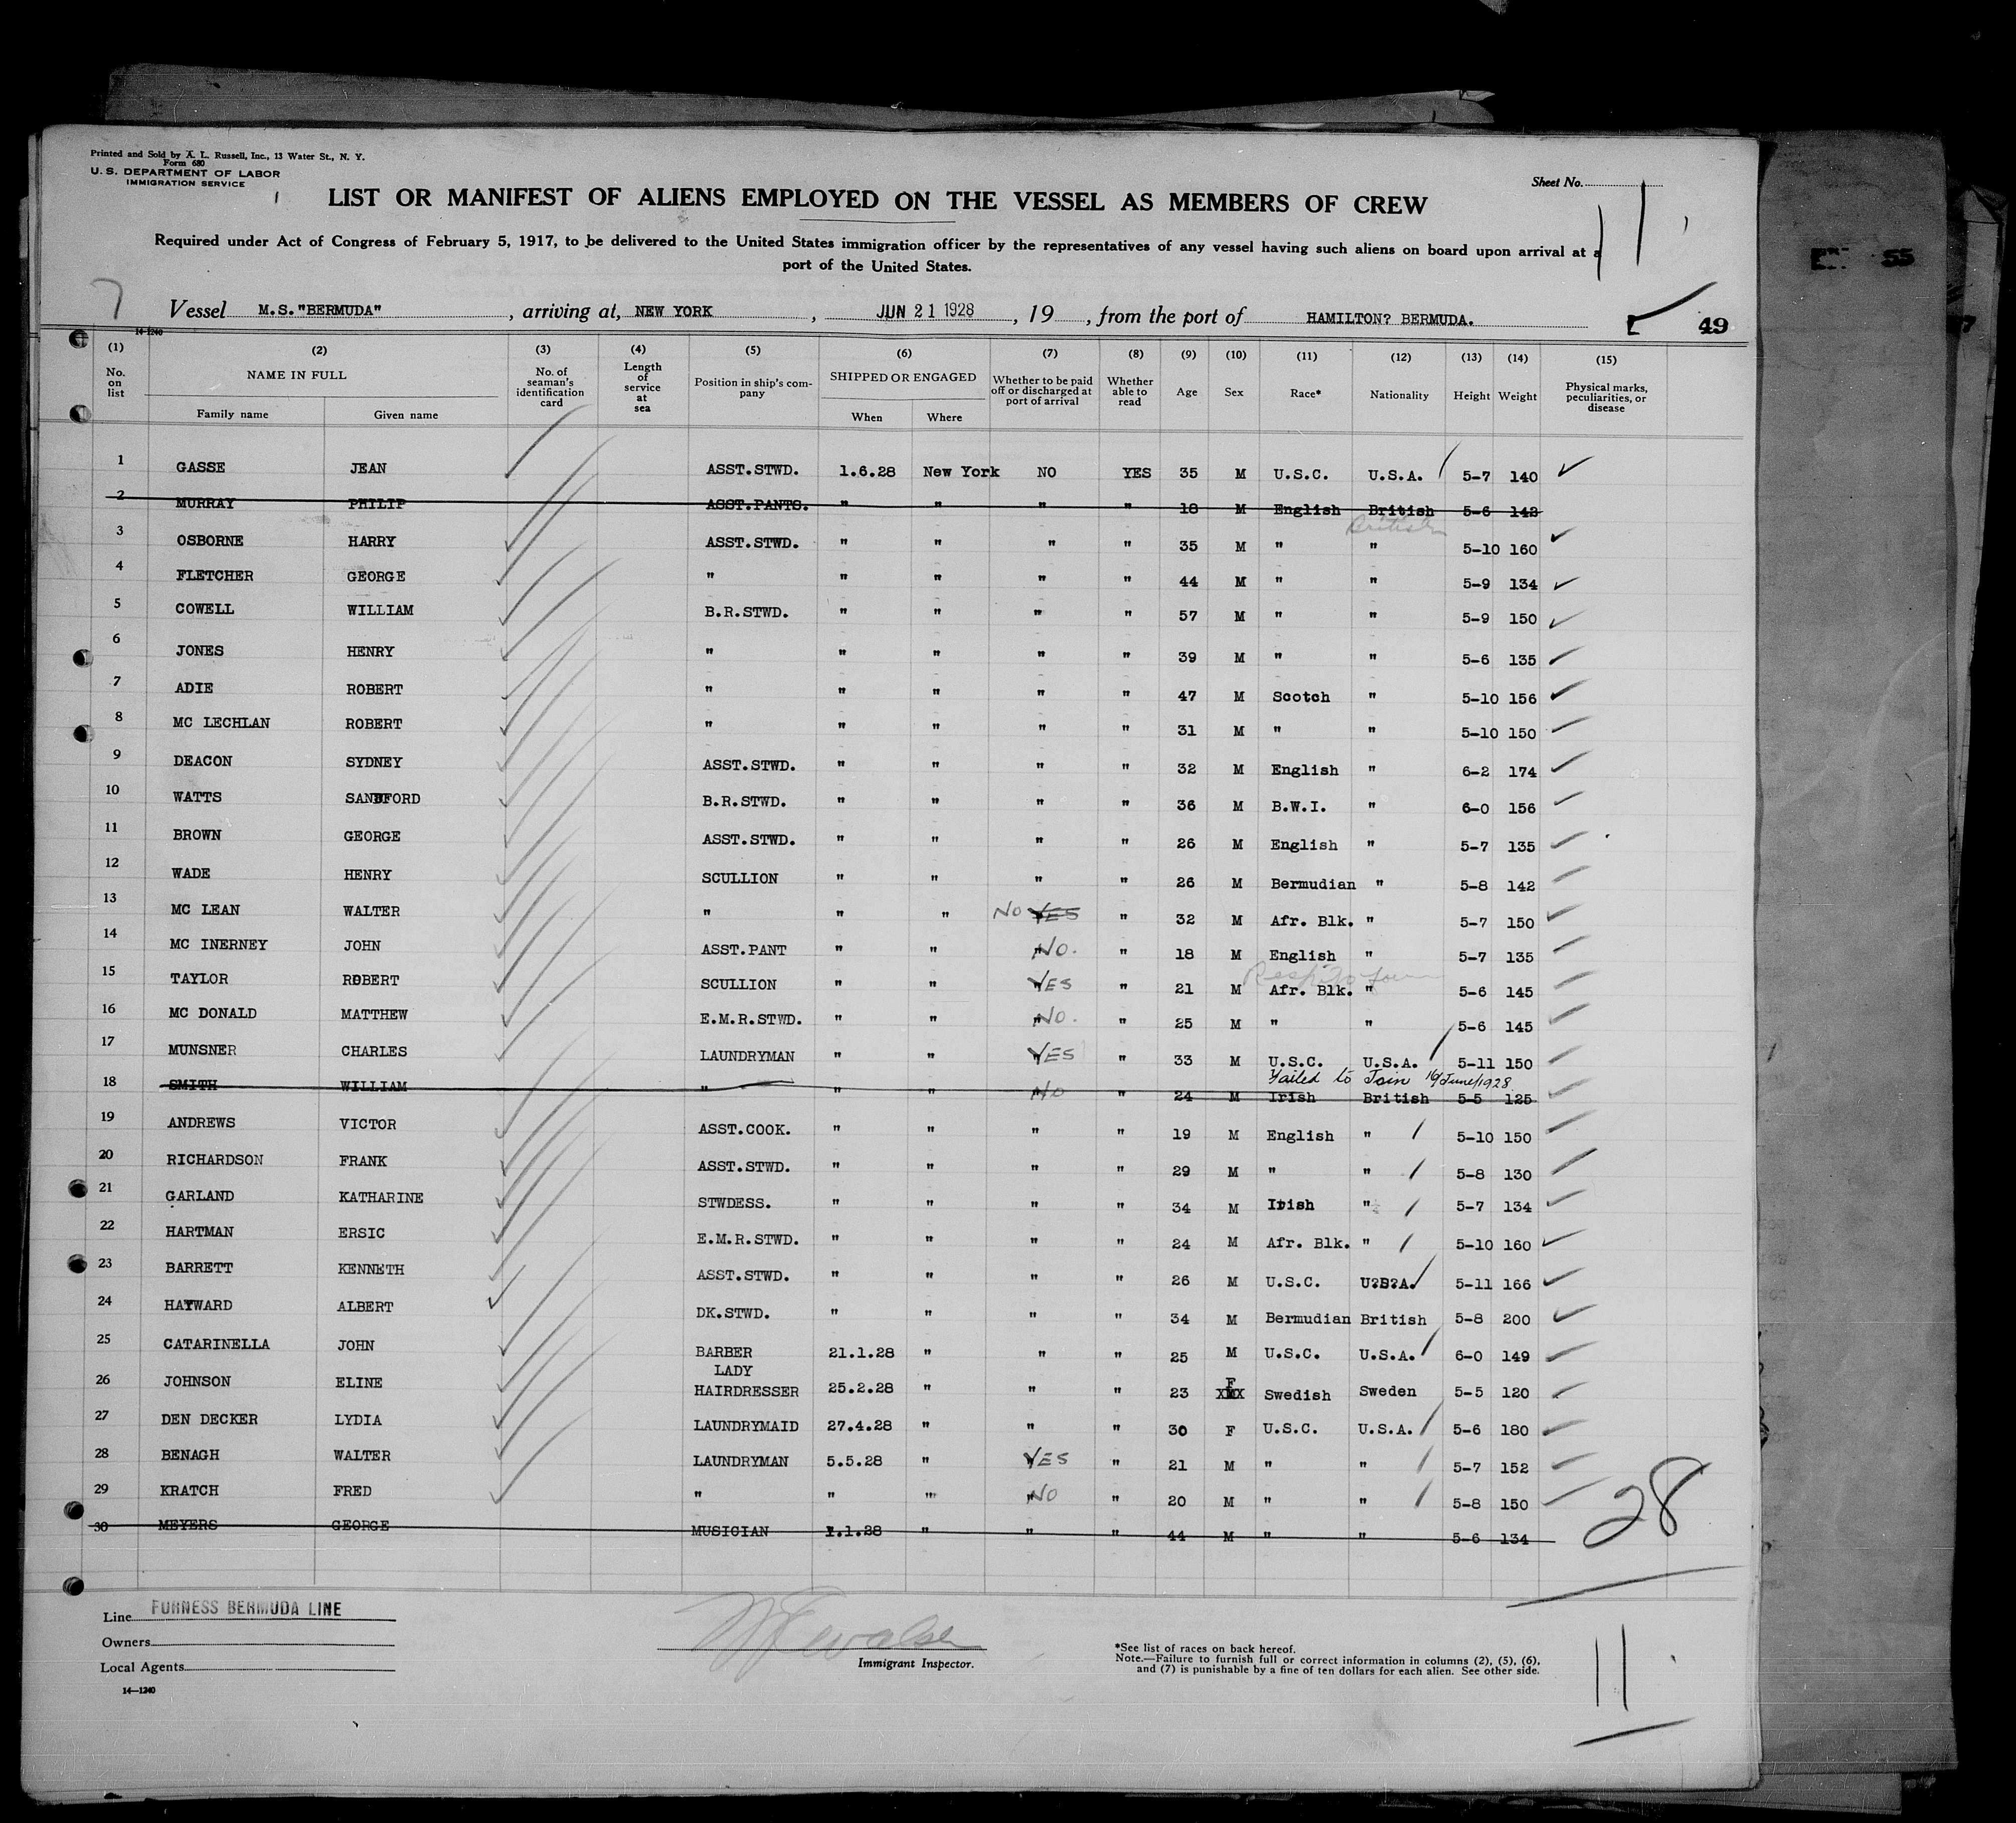 Printed and Sold by A. L. Russell, Inc., 13 Water St., N. Y.
Form 680
U. S. DEPARTMENT OF LABOR
IMMIGRATION SERVICE
Sheet No.
LIST OR MANIFEST OF ALIENS EMPLOYED ON THE VESSEL AS MEMBERS OF CREW
Required under Act of Congress of February 5, 1917, to be delivered to the United States immigration officer by the representatives of any vessel having such aliens on board upon arrival at a
port of the United States.
7 Vessel M.S."BERMUDA" , arriving at, NEW YORK , JUN 21 1928 , 19 , from the port of HAMILTON? BERMUDA. 49
14-1240
(1) No. on list (2) NAME IN FULL Family name Given name (3) No. of seaman's identification card (4) Length of service at sea (5) Position in ship's company (6) SHIPPED OR ENGAGED When Where (7) Whether to be paid off or discharged at port of arrival (8) Whether able to read (9) Age (10) Sex (11) Race* (12) Nationality (13) Height (14) Weight (15) Physical marks, peculiarities, or disease
1 GASSE JEAN ASST.STWD. 1.6.28 New York NO YES 35 M U.S.C. U.S.A. 5-7 140
2 MURRAY PHILIP ASST.PANTS. " " " " 18 M English British 5-6 142
British
3 OSBORNE HARRY ASST.STWD. " " " " 35 M " " 5-10 160
4 FLETCHER GEORGE " " " " " 44 M " " 5-9 134
5 COWELL WILLIAM B.R.STWD. " " " " 57 M " " 5-9 150
6 JONES HENRY " " " " " 39 M " " 5-6 135
7 ADIE ROBERT " " " " " 47 M Scotch " 5-10 156
8 MC LECHLAN ROBERT " " " " " 31 M " " 5-10 150
9 DEACON SYDNEY ASST.STWD. " " " " 32 M English " 6-2 174
10 WATTS SANDFORD B.R.STWD. " " " " 36 M B.W.I. " 6-0 156
11 BROWN GEORGE ASST.STWD. " " " " 26 M English " 5-7 135
12 WADE HENRY SCULLION " " " " 26 M Bermudian " 5-8 142
13 MC LEAN WALTER " " " NO YES " 32 M Afr. Blk. " 5-7 150
14 MC INERNEY JOHN ASST.PANT " " NO. " 18 M English " 5-7 135
15 TAYLOR ROBERT SCULLION " " YES " 21 M Afr. Blk. " 5-6 145
16 MC DONALD MATTHEW E.M.R.STWD. " " NO. " 25 M " " 5-6 145
17 MUNSNER CHARLES LAUNDRYMAN " " YES " 33 M U.S.C. U.S.A. 5-11 150
Failed to Join 16/June/1928
18 SMITH WILLIAM " " " NO " 24 M Irish British 5-5 125
19 ANDREWS VICTOR ASST.COOK. " " " " 19 M English " 5-10 150
20 RICHARDSON FRANK ASST.STWD. " " " " 29 M " " 5-8 130
21 GARLAND KATHARINE STWDESS. " " " " 34 M Irish " 5-7 134
22 HARTMAN ERSIC E.M.R.STWD. " " " " 24 M Afr. Blk. " 5-10 160
23 BARRETT KENNETH ASST.STWD. " " " " 26 M U.S.C. U?S?A. 5-11 166
24 HAYWARD ALBERT DK.STWD. " " " " 34 M Bermudian British 5-8 200
25 CATARINELLA JOHN BARBER 21.1.28 " " " 25 M U.S.C. U.S.A. 6-0 149
26 JOHNSON ELINE LADY HAIRDRESSER 25.2.28 " " " 23 F XMX Swedish Sweden 5-5 120
27 DEN DECKER LYDIA LAUNDRYMAID 27.4.28 " " " 30 F U.S.C. U.S.A. 5-6 180
28 BENAGH WALTER LAUNDRYMAN 5.5.28 " YES " 21 M " " 5-7 152
29 KRATCH FRED " " " NO " 20 M " " 5-8 150
30 MEYERS GEORGE MUSICIAN 1.1.28 " " " 44 M " " 5-6 134
28
Line FURNESS BERMUDA LINE
Owners
Local Agents
14-1240
Immigrant Inspector.
*See list of races on back hereof.
Note.—Failure to furnish full or correct information in columns (2), (5), (6),
and (7) is punishable by a fine of ten dollars for each alien. See other side.
11
55